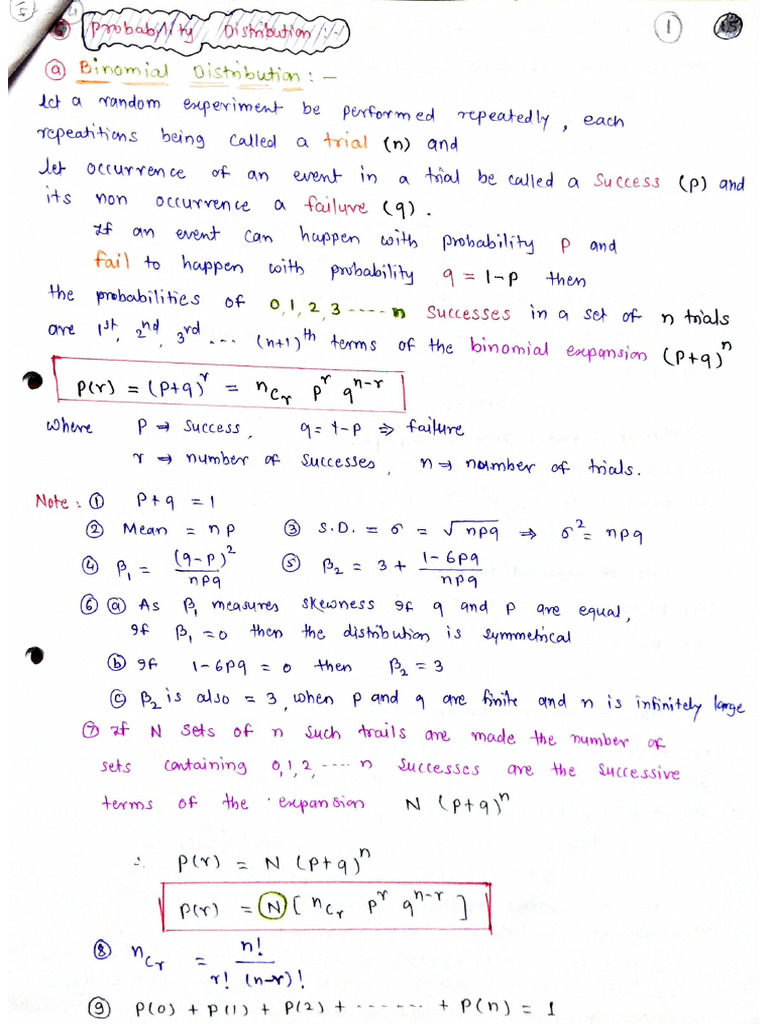 Probability Distribution :-
① 15
ⓐ Binomial Distribution : —
let a random experiment be performed repeatedly, each
repeatitions being called a trial (n) and
let occurrence of an event in a trial be called a success (p) and
its non occurrence a failure (q).
If an event can happen with probability p and
fail to happen with probability q = 1-p then
the probabilities of 0,1,2,3 ----- n successes in a set of n trials
are 1st, 2nd, 3rd .... (n+1)th terms of the binomial expansion (p+q)^n
P(r) = (p+q)^r = nCr p^r q^n-r
where p → success, q = 1-p ⇒ failure
r → number of successes, n → number of trials.
Note : ① p+q = 1
② Mean = np ③ S.D. = σ = √npq ⇒ σ² = npq
④ β₁ = (q-p)²/npq ⑤ β₂ = 3 + 1-6pq/npq
⑥ ⓐ As β₁ measures skewness If q and p are equal,
If β₁ = 0 then the distribution is symmetrical
ⓑ If 1-6pq = 0 then β₂ = 3
ⓒ β₂ is also = 3, when p and q are finite and n is infinitely large
⑦ If N sets of n such trails are made the number of
sets containing 0,1,2, ----- n successes are the successive
terms of the expansion N (p+q)^n
∴ P(r) = N (p+q)^n
P(r) = N [ nCr p^r q^n-r ]
⑧ nCr = n!/r! (n-r)!
⑨ P(0) + P(1) + P(2) + ------ + P(n) = 1